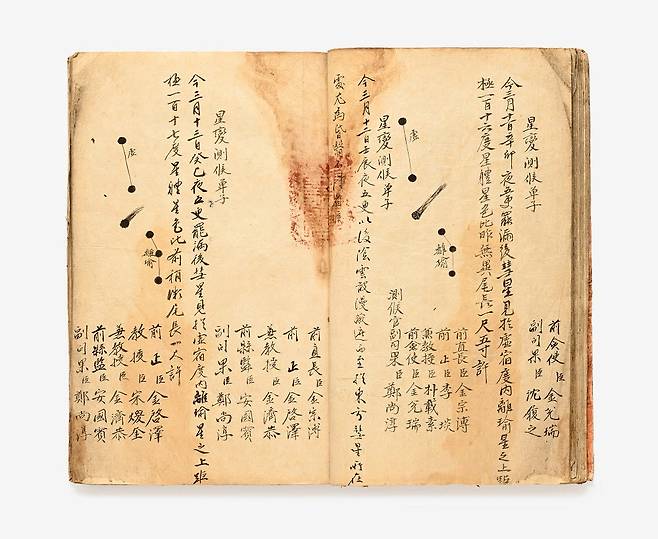 前僉使臣金允瑞
副司果臣沈復之
星變測候單子
今三月十一日辛卯夜五更罷漏後彗星見於虛宿度內離瑜星之上距
極一百十六度星體星色比昨無異尾長一尺五寸許
離瑜
前直長臣金宗溥
前正臣李埮
兼教授臣朴載素
前僉使臣金允瑞
測候官副司果臣鄭尚淳
星變測候單子
今三月十二日壬辰夜五更以後陰雲散漫 而至於東方彗星所在
處尤為昏翳
前直長臣金宗溥
前正臣金啓澤
兼教授臣金濟恭
前縣監臣安國賓
副司果臣鄭尚淳
星變測候單子
今三月十三日癸巳夜五更罷漏後彗星見於虛宿度內離瑜星之上距
極一百十七度星體星色比前稍微尾長一尺許
虛
離瑜
前正臣金啓澤
教授臣宋㷜金
兼教授臣金濟恭
前縣監臣安國賓
副司果臣鄭尚淳